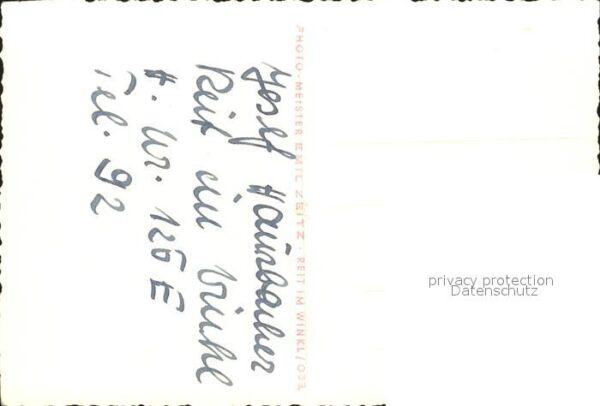 Josef Hausbacher
Reit im Winkl
H. Nr. 126 E
Tel. 92
PHOTO-MEISTER EMIL ZEITZ · REIT IM WINKL/OBB.
privacy protection
Datenschutz